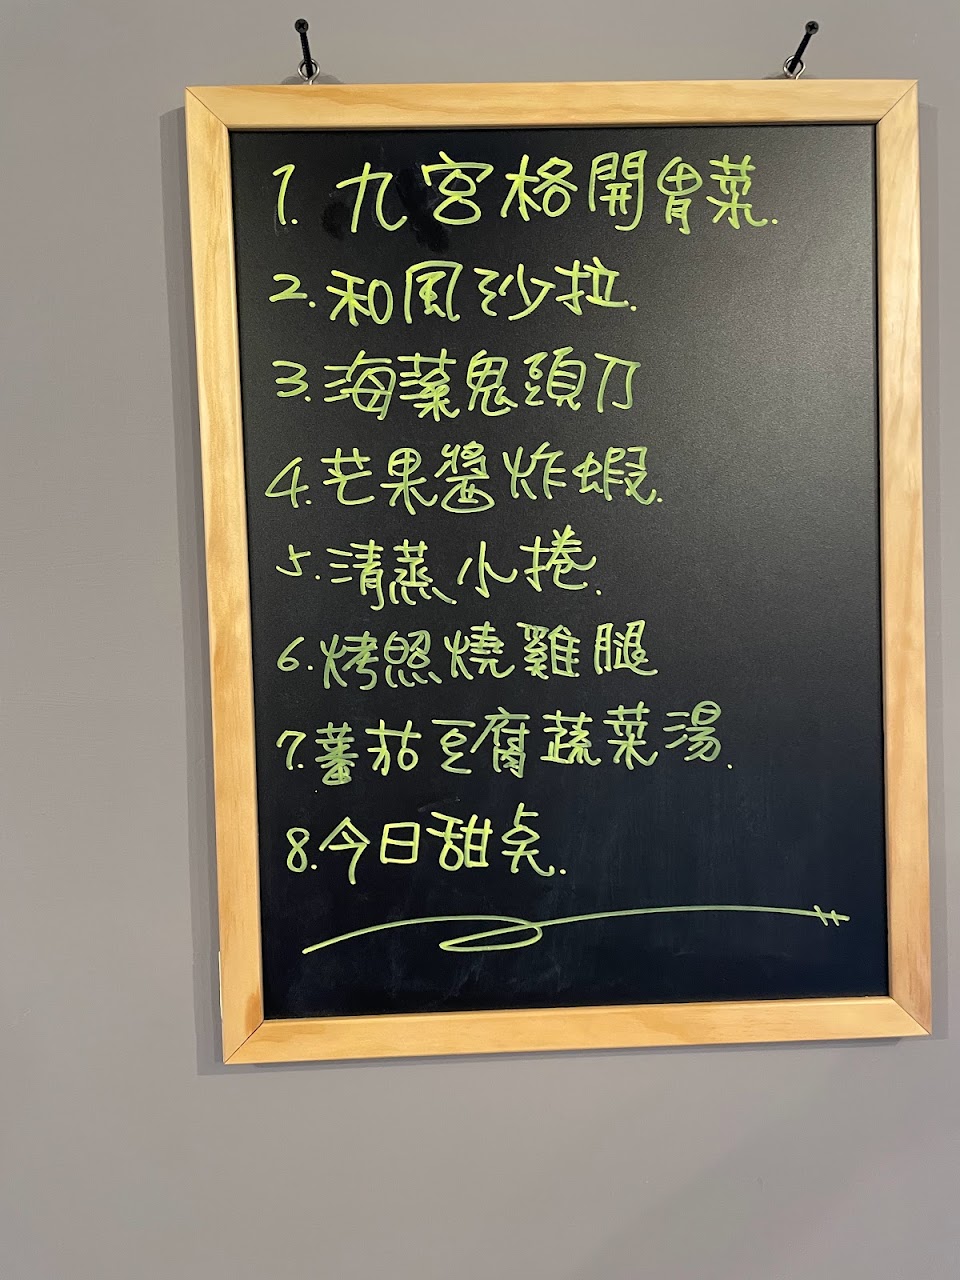 1. 九宮格開胃菜.
2. 和風沙拉.
3. 海菜鬼頭刀
4. 芒果醬炸蝦.
5. 清蒸小捲.
6. 烤照燒雞腿
7. 蕃茄豆腐蔬菜湯.
8. 今日甜点.